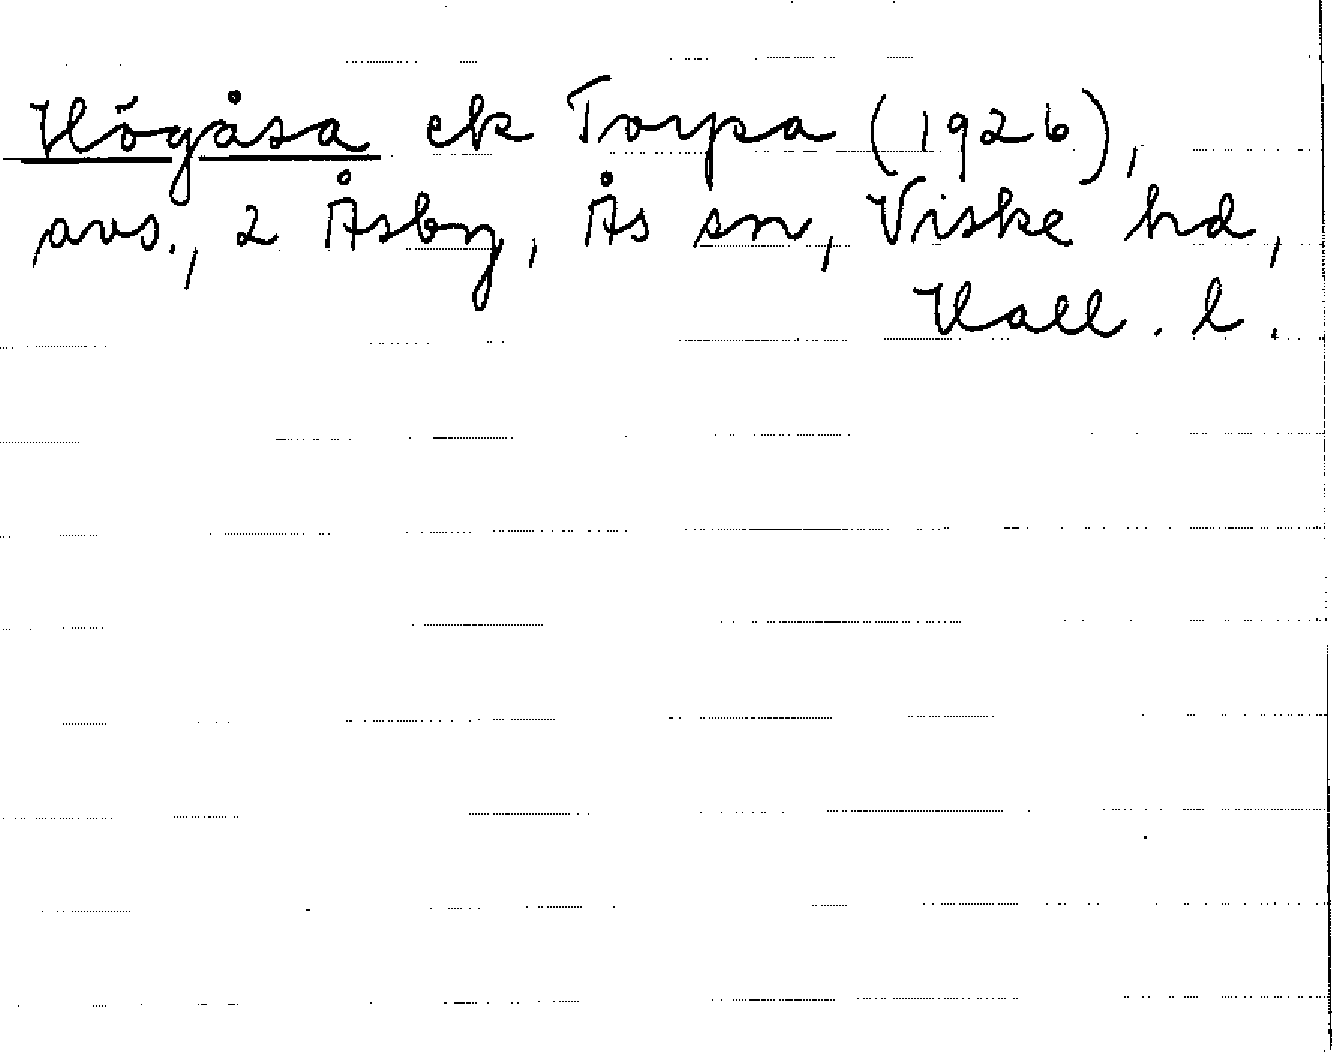 Högåsa ek Torpa (1926),
avs., 2 Åsby, Ås sn, Viske hd,
Hall. l.